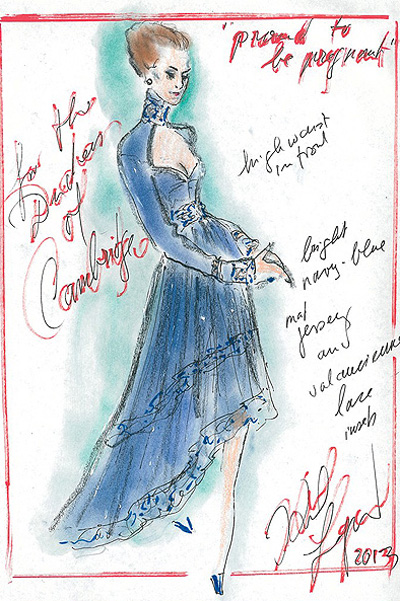 "proud to
be pregnant"
for the
Duchess
of
Cambridge
high waist
in front
bright
navy-blue
mat
jersey
and
valenciennes
lace
insets
Lagerfeld
2013